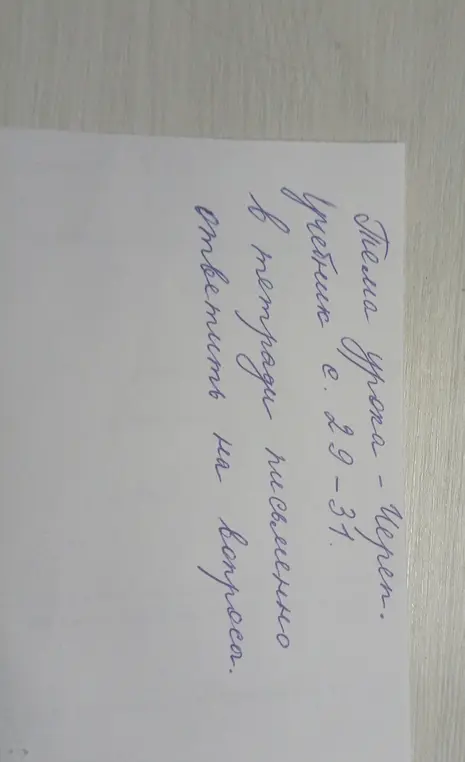 Тема урока - Череп.
Учебник с. 29-31.
В тетради письменно
ответить на вопросы.